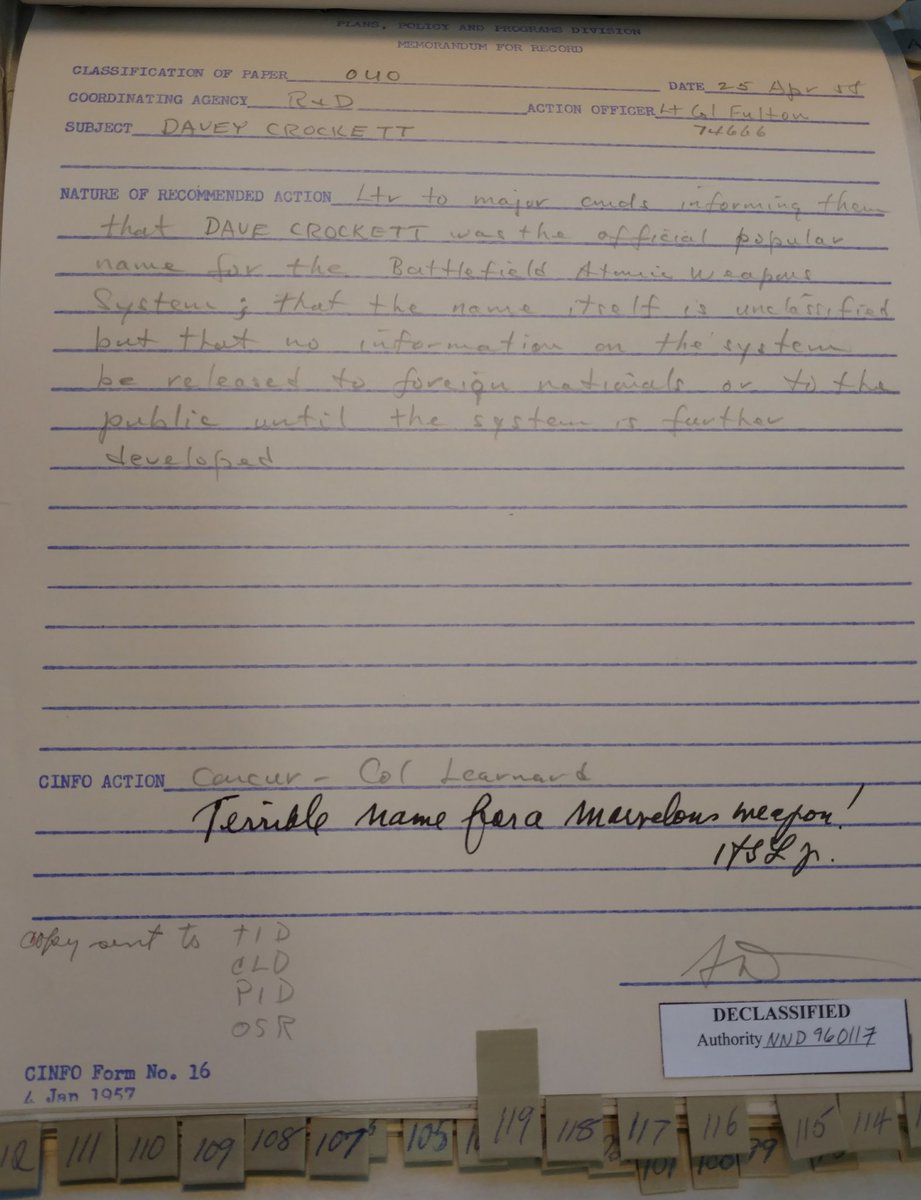 PLANS, POLICY AND PROGRAMS DIVISION
MEMORANDUM FOR RECORD
CLASSIFICATION OF PAPER OUO
DATE 25 Apr 58
COORDINATING AGENCY R&D
ACTION OFFICER Lt Col Fulton
SUBJECT DAVEY CROCKETT
74666
NATURE OF RECOMMENDED ACTION Ltr to major cmds informing them
that DAVE CROCKETT was the official popular
name for the Battlefield Atomic Weapons
System; that the name itself is unclassified
but that no information on the system
be released to foreign nationals or to the
public until the system is further
developed
CINFO ACTION Concur - Col Learnard
Terrible name for a marvelous weapon!
HSL jr.
copy sent to TID
CLD
PID
OSR
DECLASSIFIED
Authority NND 960117
CINFO Form No. 16
4 Jan 1957
12 111 110 109 108 107 105 119 118 117 116 115 114
101 100 99